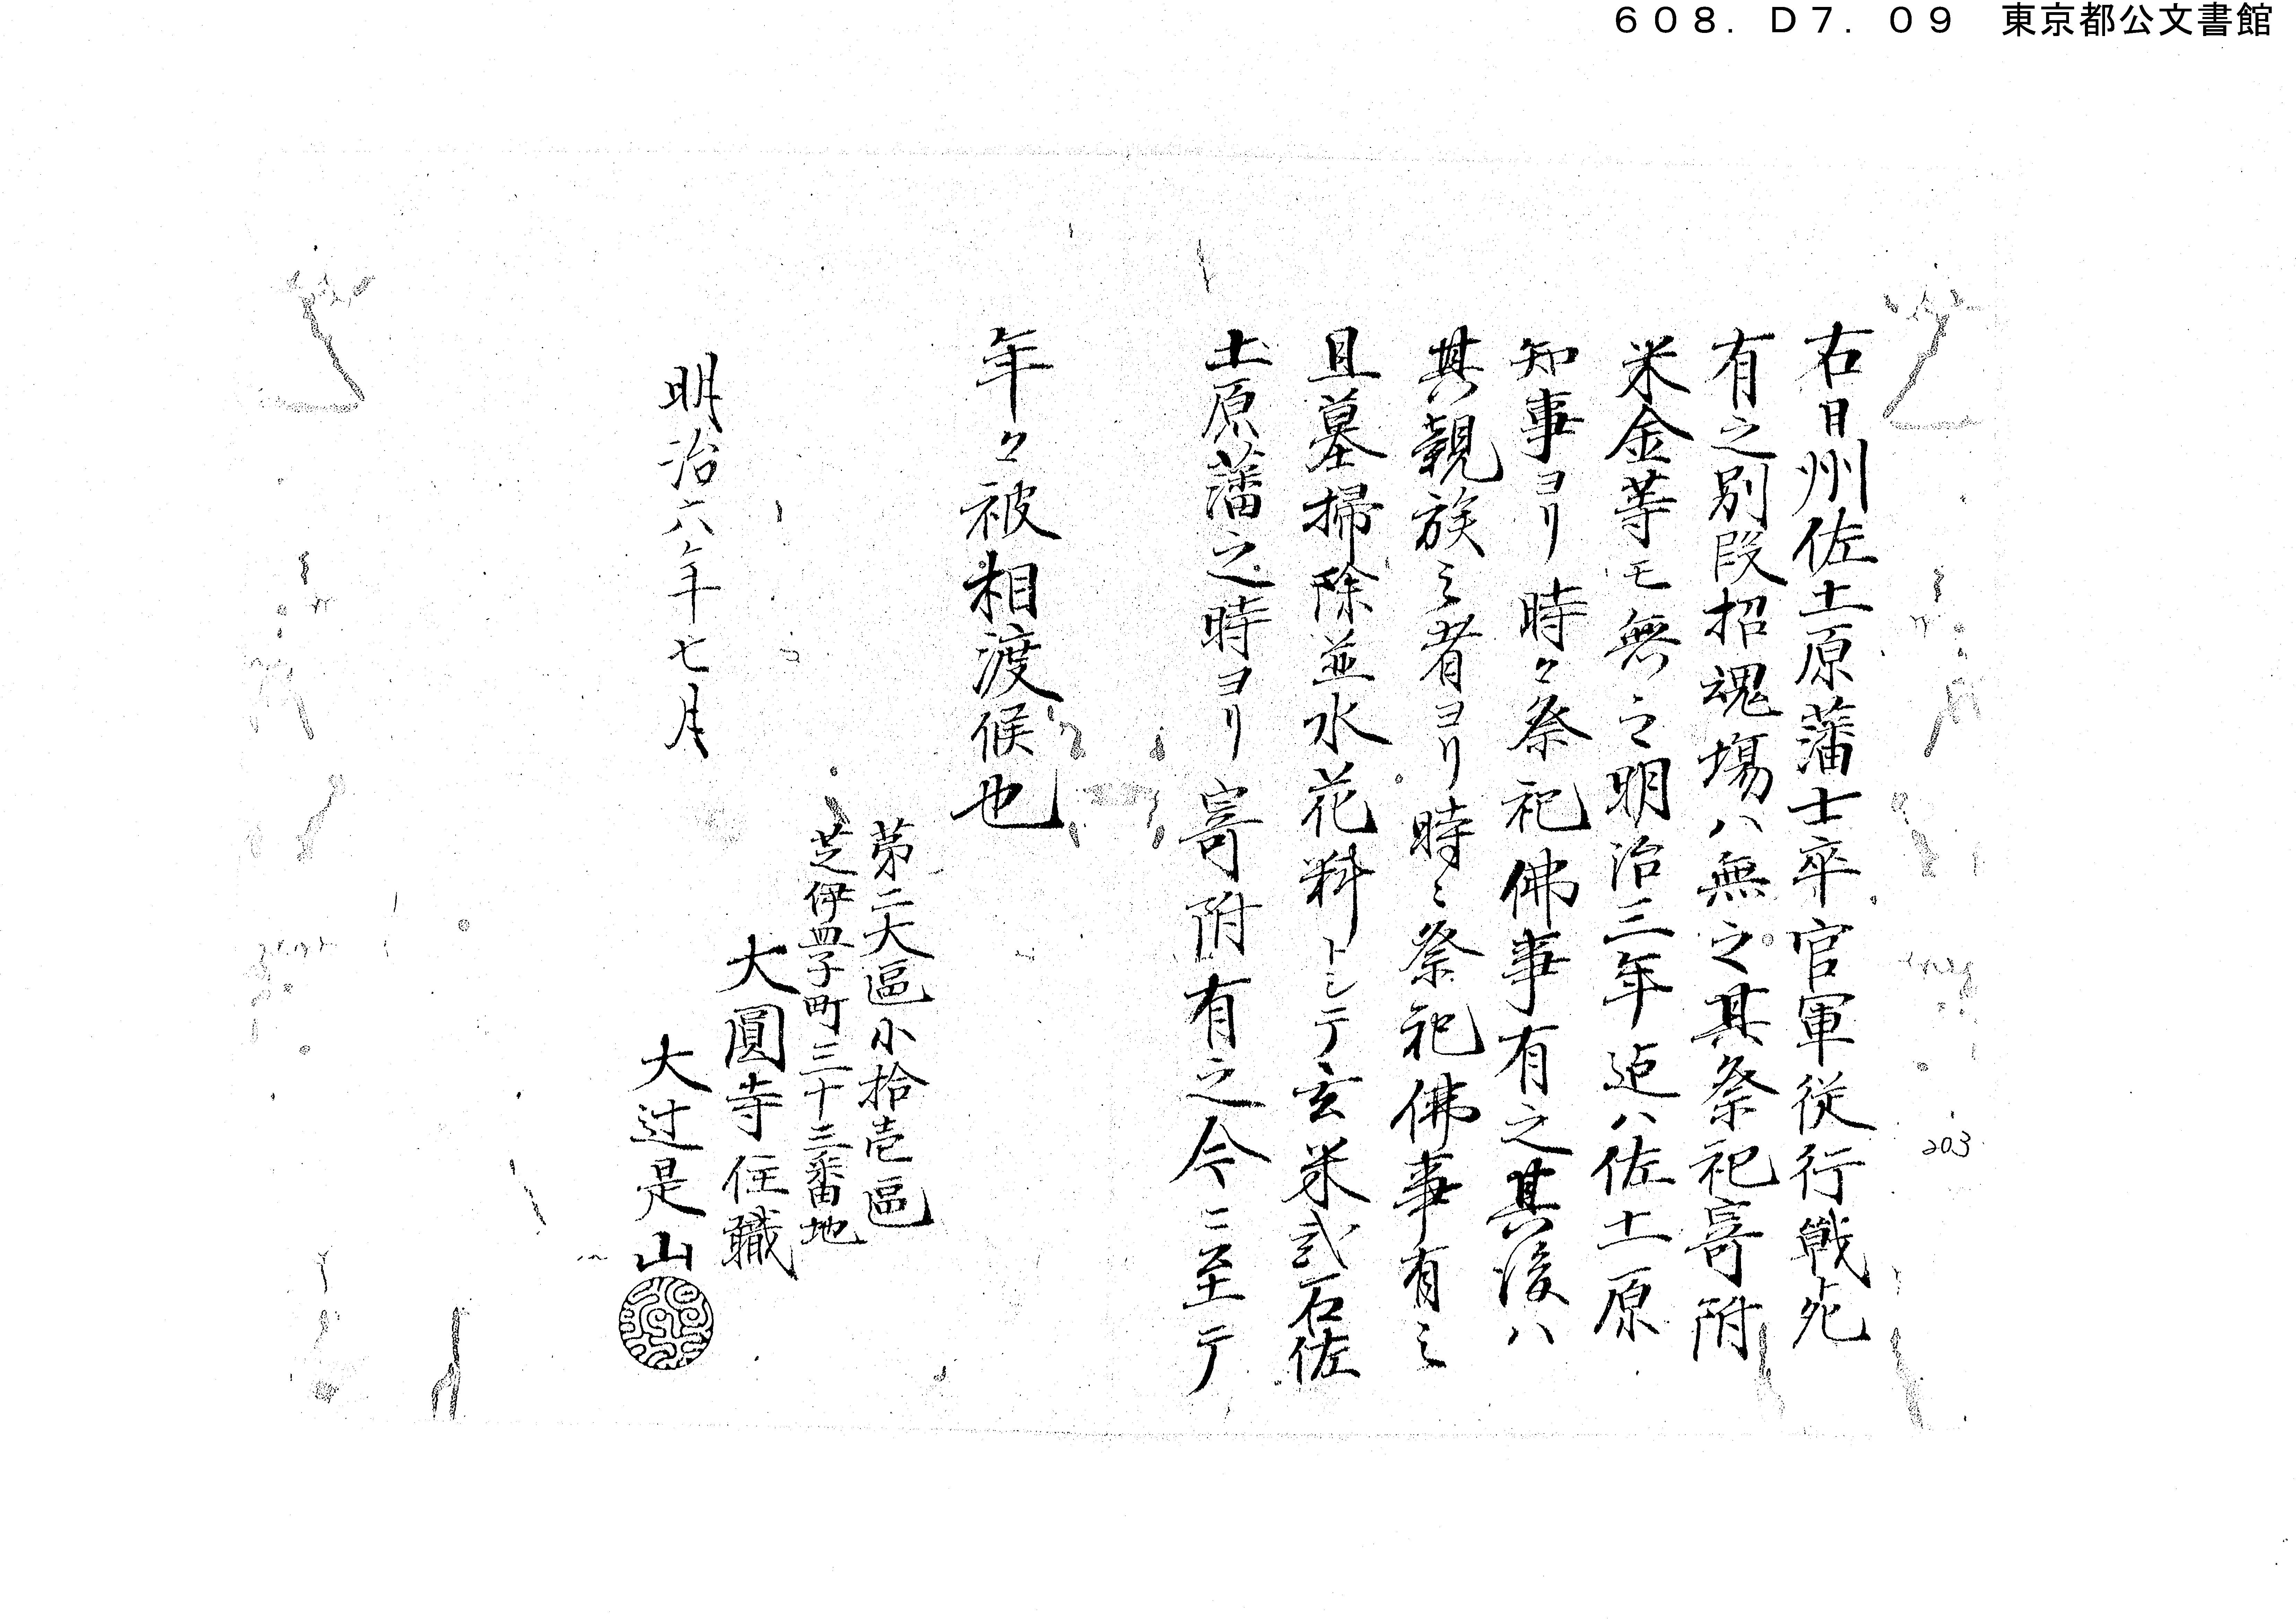 608. D7. 09 東京都公文書館
右日州佐土原藩士卒官軍従行戦死
有之別段招魂塲ハ無之其祭祀寄附
米金等モ無之明治三年迠ハ佐土原
知事ヨリ時々祭祀佛事有之其後ハ
其親族之者ヨリ時々祭祀佛事有之
且墓掃除並水花料トシテ玄米弐石佐
土原藩之時ヨリ寄附有之今ニ至テ
年々被相渡候也
第二大區小拾壱區
芝伊皿子町三十三番地
大圓寺住職
明治六年七月
大辻是山
203